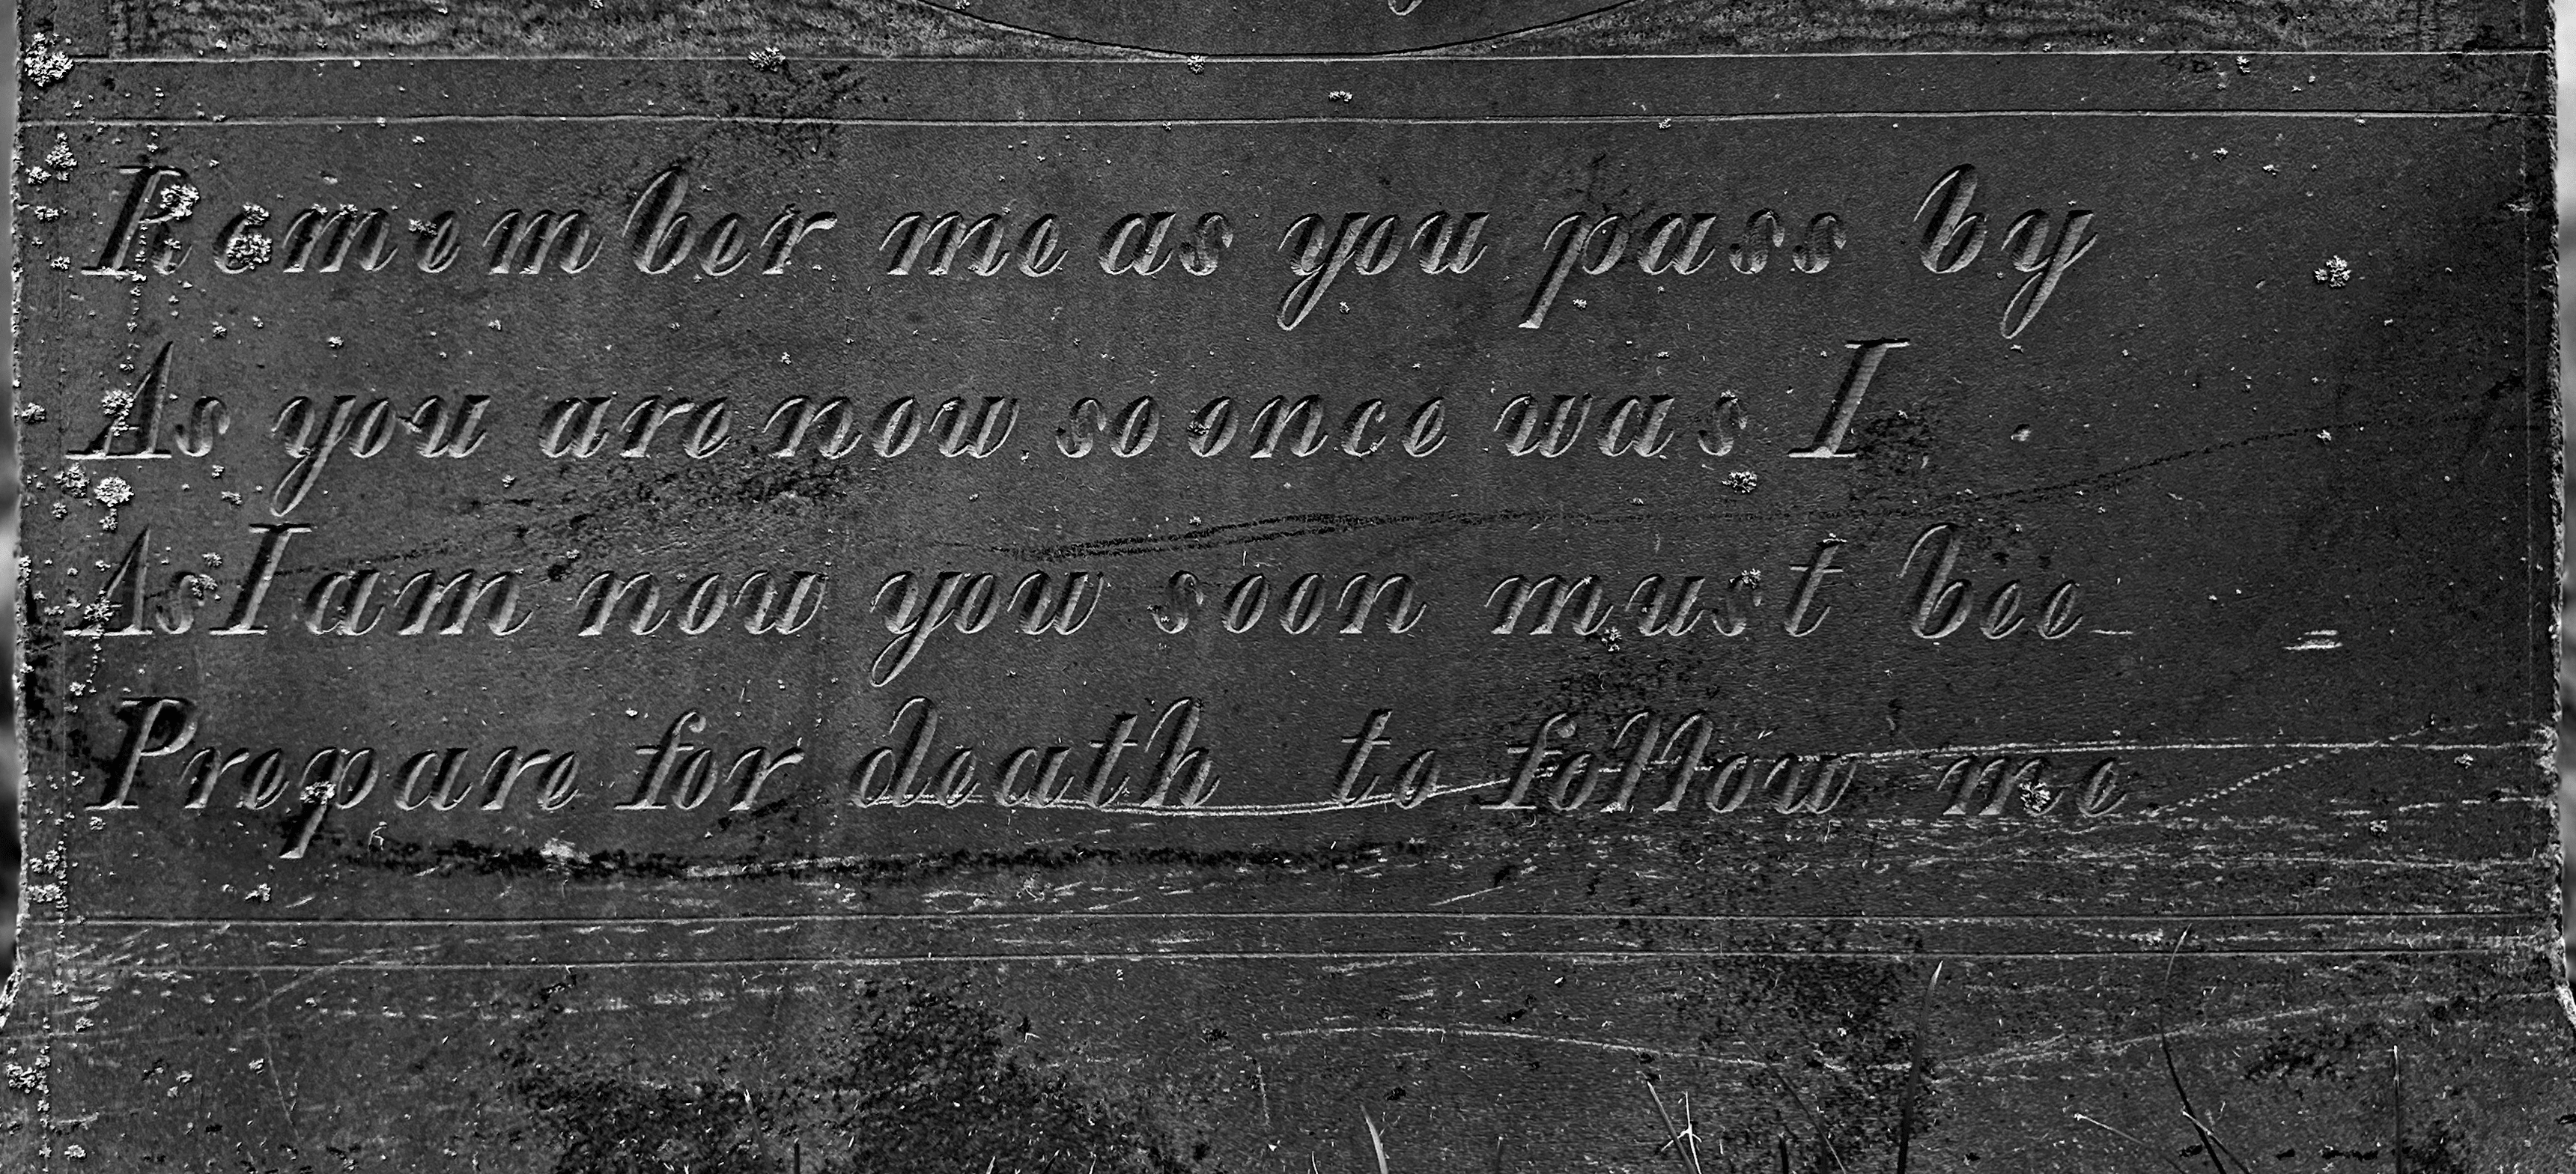 Remember me as you pass by
As you are now so once was I
As I am now yow soon must bee
Prepare for death to follow me